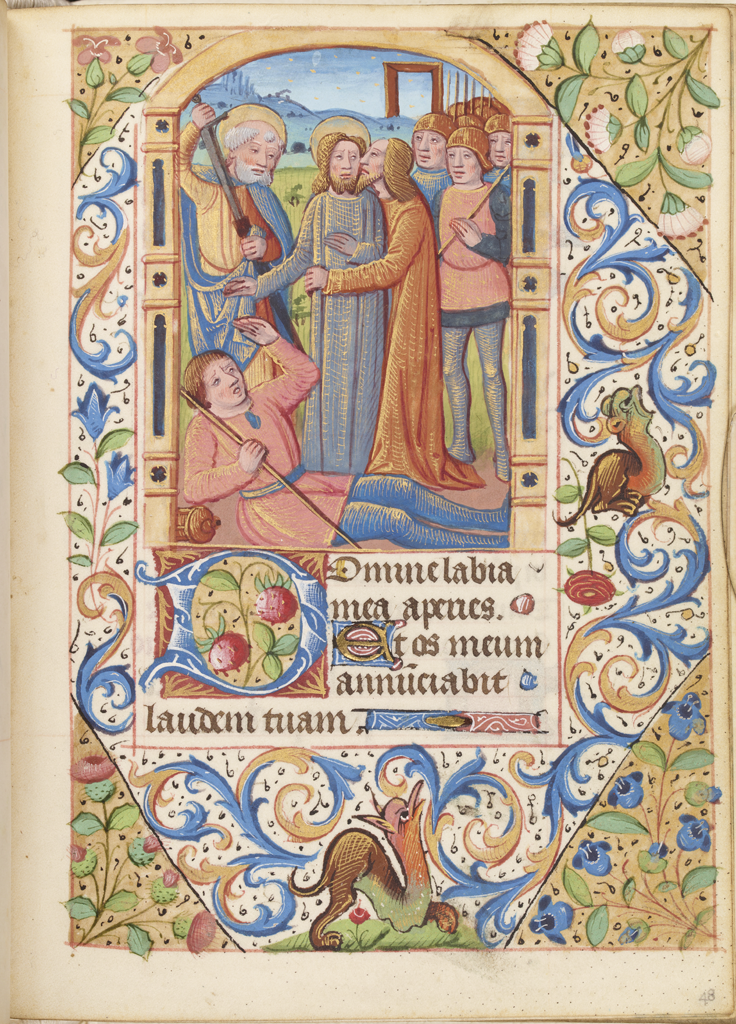 Domine labia
mea aperies.
Et os meum
annūciabit
laudem tuam.
48